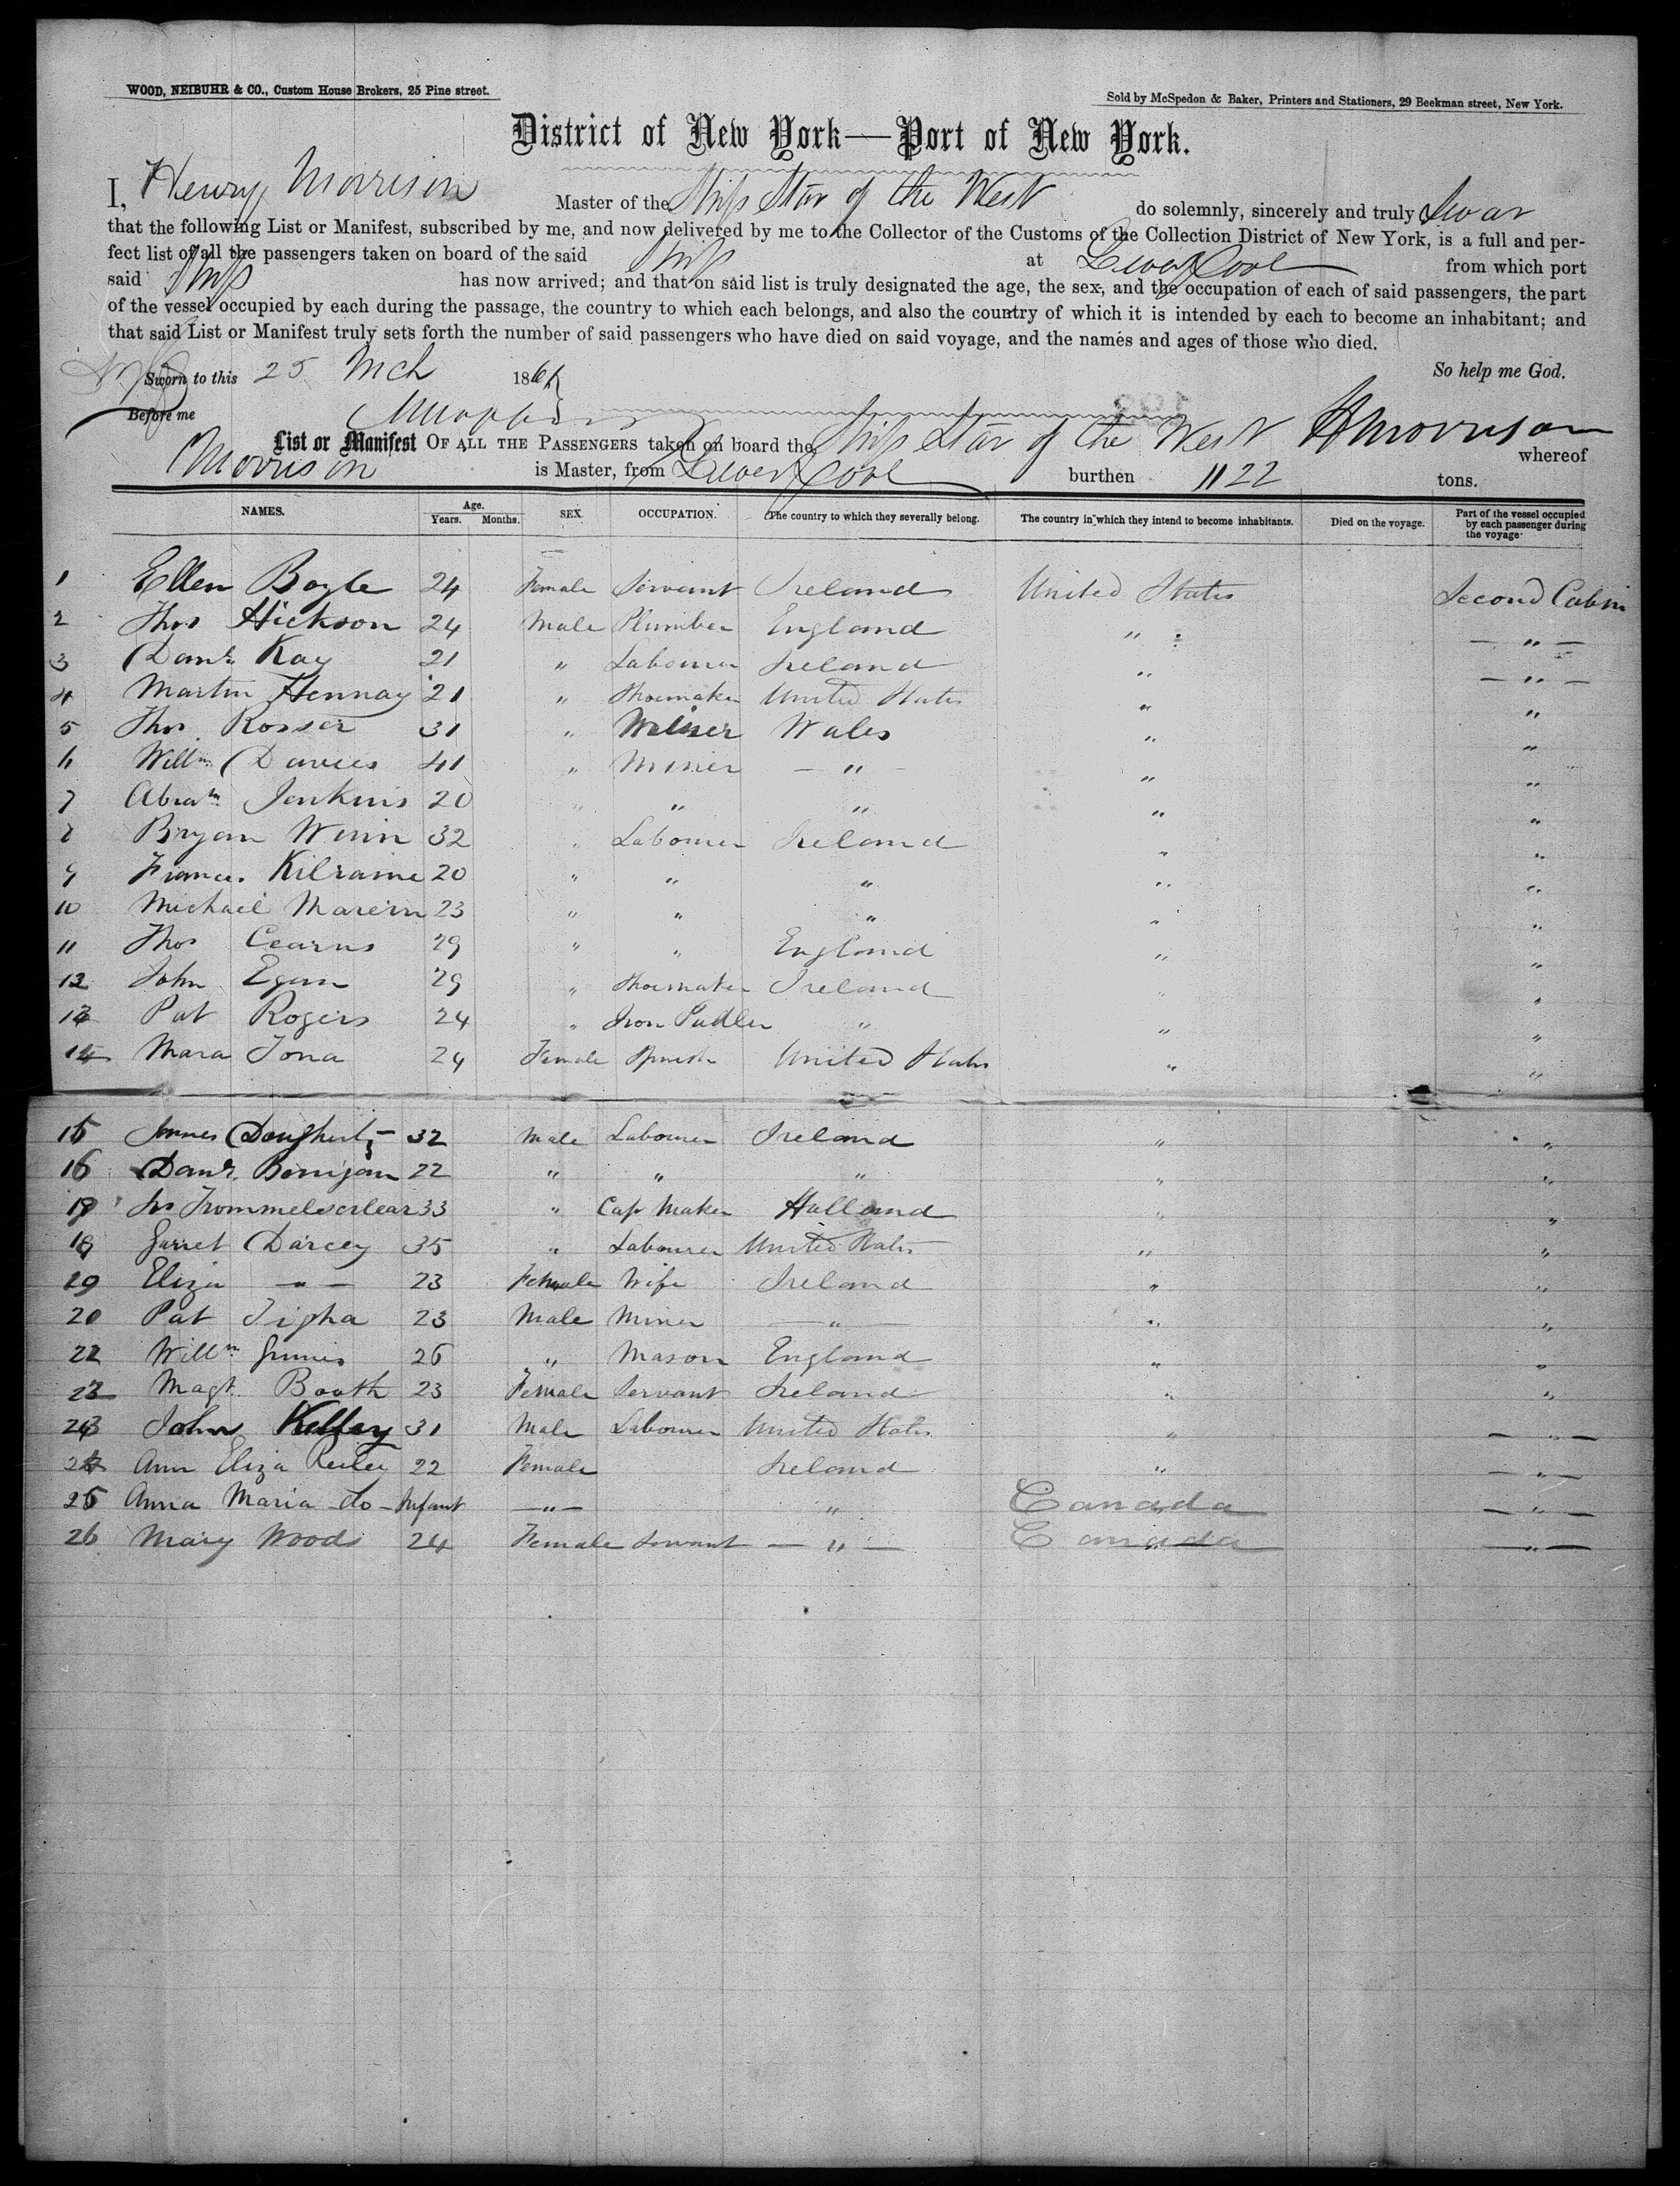 WOOD, NEIBUHR & CO., Custom House Brokers, 25 Pine street.
Sold by McSpedon & Baker, Printers and Stationers, 29 Beekman street, New York.
District of New York—Port of New York.
I, Henry Morrison Master of the Ship Star of the West do solemnly, sincerely and truly Swear
that the following List or Manifest, subscribed by me, and now delivered by me to the Collector of the Customs of the Collection District of New York, is a full and per-
fect list of all the passengers taken on board of the said Ship at Liverpool from which port
said Ship has now arrived; and that on said list is truly designated the age, the sex, and the occupation of each of said passengers, the part
of the vessel occupied by each during the passage, the country to which each belongs, and also the country of which it is intended by each to become an inhabitant; and
that said List or Manifest truly sets forth the number of said passengers who have died on said voyage, and the names and ages of those who died.
So help me God.
Sworn to this 25 Mch 1861
Before me
List or Manifest OF ALL THE PASSENGERS taken on board the Ship Star of the West HMorrison whereof
Morrison is Master, from Liverpool burthen 1122 tons.
NAMES. Age. Years. Months. SEX. OCCUPATION. The country to which they severally belong. The country in which they intend to become inhabitants. Died on the voyage. Part of the vessel occupied by each passenger during the voyage
1 Ellen Boyle 24 Female Servant Ireland United States Second Cabin
2 Thos Hickson 24 Male Plumber England " — " —
3 Danl Kay 21 " Labourer Ireland " — " —
4 Martin Hennay 21 " Shoemaker United States " "
5 Thos. Rosser 31 " Wales " "
6 Willm Davies 41 " Miner — " — " "
7 Abram Jenkins 20 " " " " "
8 Bryan Winn 32 " Labourer Ireland " "
9 Frances Kilraine 20 " " " " "
10 Michael 23 " " " " "
11 Thos Cearns 29 " " England " "
12 John Egan 29 " Shoemaker Ireland " "
13 Pat Rogers 24 " Iron Pudler " " "
14 Mara Iona 24 Female United States " "
15 James Dougherty 32 Male Labourer Ireland " "
16 Danl. 22 " " " " "
17 33 " Cap Maker Holland " "
18 Garret Darcey 35 " Labourer United States " "
19 Eliza — " — 23 Female Wife Ireland " "
20 Pat Tigha 23 Male Miner — " — " "
21 Willm 26 " Mason England " "
22 Magt. Booth 23 Female Servant Ireland " "
23 John Kelley 31 Male Labourer United States " — " —
24 Ann Eliza 22 Female Ireland " — " —
25 Anna Maria do - Infant — " — " Canada — " —
26 Mary Woods 24 Female Servant — " — Canada — " —